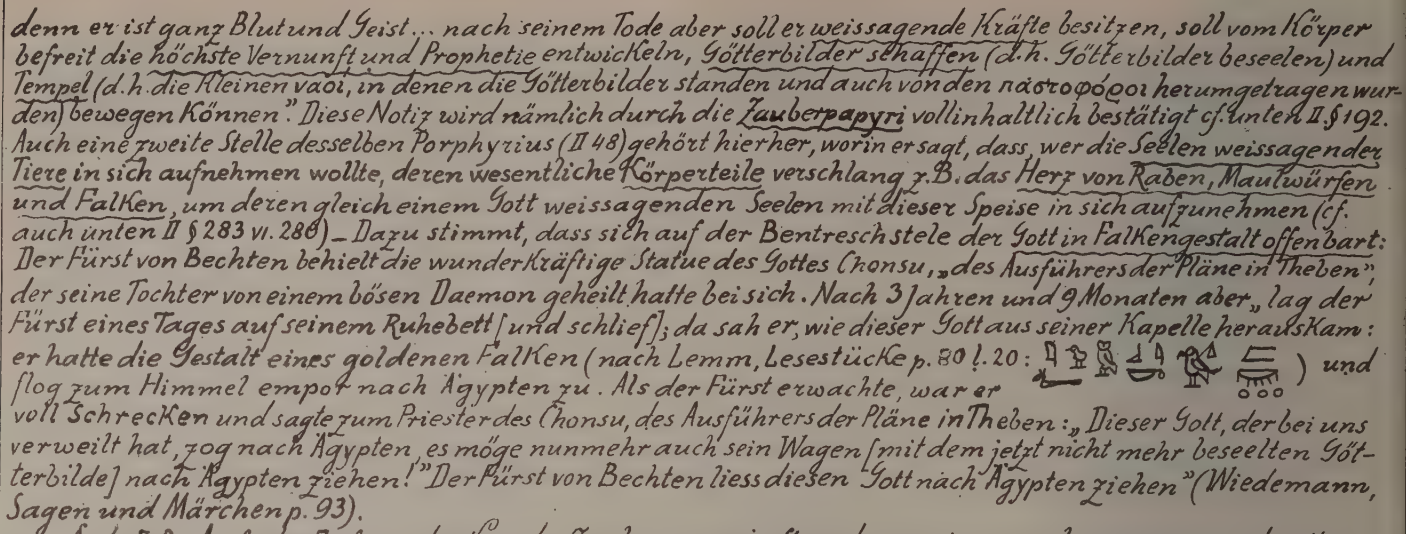 denn er ist ganz Blut und Geist... nach seinem Tode aber soll er weissagende Kräfte besitzen, soll vom Körper
befreit die höchste Vernunft und Prophetie entwickeln, Götterbilder schaffen (d.h. Götterbilder beseelen) und
Tempel (d.h. die kleinen ναοι, in denen die Götterbilder standen und auch von den παστοφόροι herumgetragen wur-
den) bewegen können". Diese Notiz wird nämlich durch die Zauberpapyri vollinhaltlich bestätigt cf. unten II. § 192.
Auch eine zweite Stelle desselben Porphyrius (II 48) gehört hierher, worin er sagt, dass, wer die Seelen weissagender
Tiere in sich aufnehmen wollte, deren wesentliche Körperteile verschlang z.B. das Herz von Raben, Maulwürfen
und Falken, um deren gleich einem Gott weissagenden Seelen mit dieser Speise in sich aufzunehmen (cf.
auch unten II § 283 vi. 286) _ Dazu stimmt, dass sich auf der Bentreschstele der Gott in Falkengestalt offenbart:
Der Fürst von Bechten behielt die wunderkräftige Statue des Gottes Chonsu, „des Ausführers der Pläne in Theben",
der seine Tochter von einem bösen Daemon geheilt hatte bei sich. Nach 3 Jahren und 9 Monaten aber „lag der
Fürst eines Tages auf seinem Ruhebett [und schlief]; da sah er, wie dieser Gott aus seiner Kapelle herauskam:
er hatte die Gestalt eines goldenen Falken (nach Lemm, Lesestücke p. 80 l. 20: ) und
flog zum Himmel empor nach Ägypten zu. Als der Fürst erwachte, war er
voll Schrecken und sagte zum Priester des Chonsu, des Ausführers der Pläne in Theben: „Dieser Gott, der bei uns
verweilt hat, zog nach Ägypten, es möge nunmehr auch sein Wagen [mit dem jetzt nicht mehr beseelten Göt-
terbilde] nach Ägypten ziehen!" Der Fürst von Bechten liess diesen Gott nach Ägypten ziehen" (Wiedemann,
Sagen und Märchen p. 93).